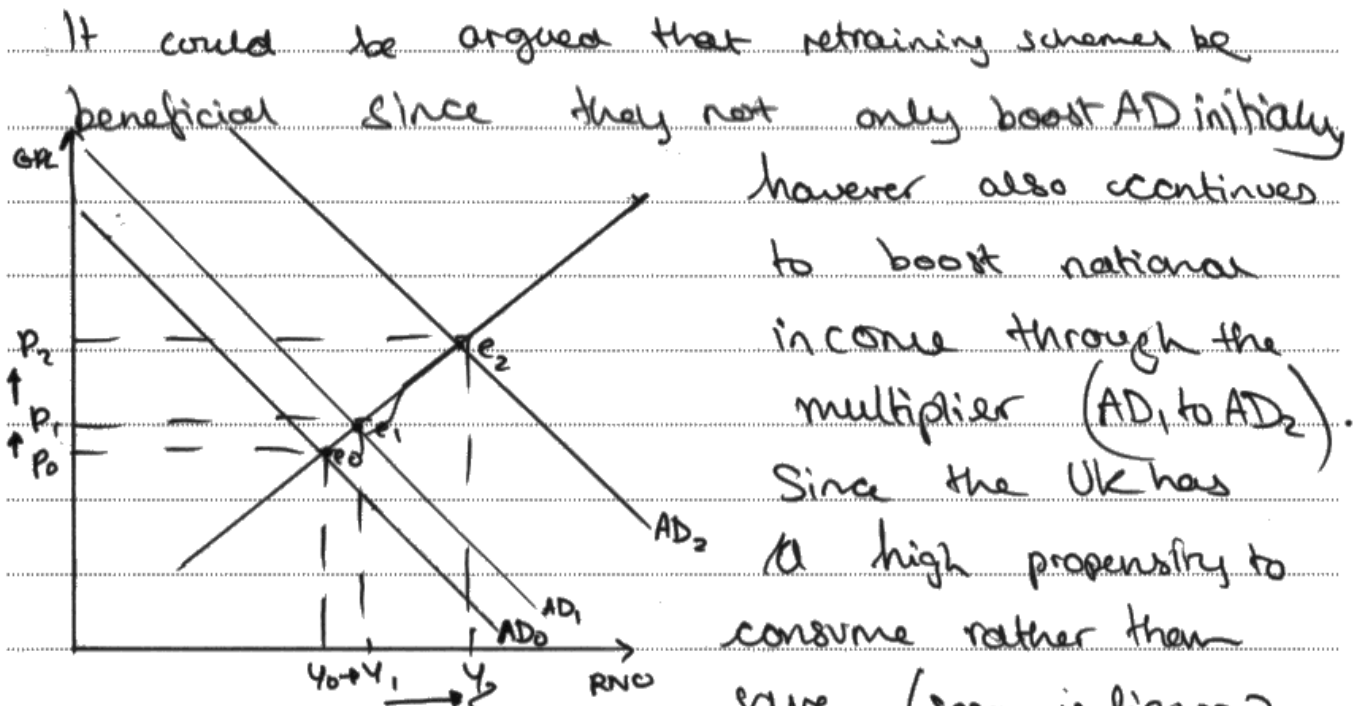 It could be argued that retraining schemes be
beneficial since they not only boost AD initially
however also ccontinues
to boost national
income through the
multiplier (AD₁ to AD₂).
Since the UK has
a high propensity to
consume rather than
save
GPL
P₂
P₁
P₀
e₂
e₁
e₀
AD₂
AD₁
AD₀
Y₀→Y₁ Y₂
RNO